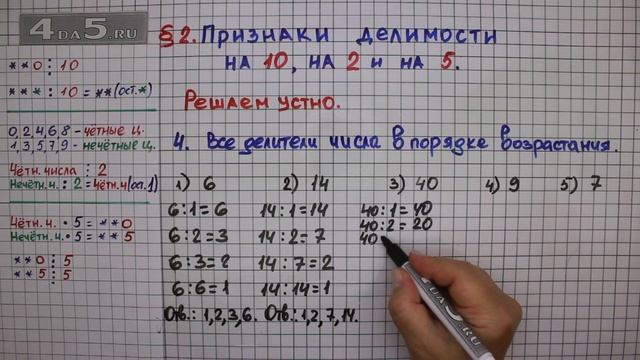 4DA5.RU
§2. Признаки делимости
на 10, на 2 и на 5.
Решаем устно.
4. Все делители числа в порядке возрастания.
**0 ⋮ 10
*** : 10 = **(ост.*)
0,2,4,6,8 - чётные ц.
1,3,5,7,9 - нечётные ц.
Чётн. числа ⋮ 2
Нечётн. ч. : 2 = чётн. ч (ост. 1)
Чётн. ч. • 5 = **0
Нечётн. ч. • 5 = **5
**0 ⋮ 5
**5 ⋮ 5
1) 6 2) 14 3) 40 4) 9 5) 7
6:1=6 14:1=14 40:1=40
6:2=3 14:2=7 40:2=20
6:3=2 14:7=2 40
6:6=1 14:14=1
Отв.: 1,2,3,6. Отв.: 1,2,7,14.
4DA5.RU